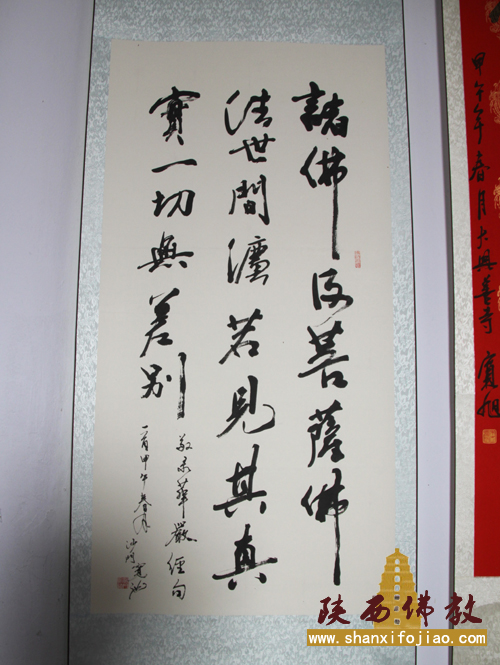 諸佛及菩薩佛
法世間灋若見其真
實一切無差別
敬录華嚴經句
一首甲午春月沙門寬旭
甲午年春月大興善寺 寬旭
陕西佛教
www.shanxifojiao.com